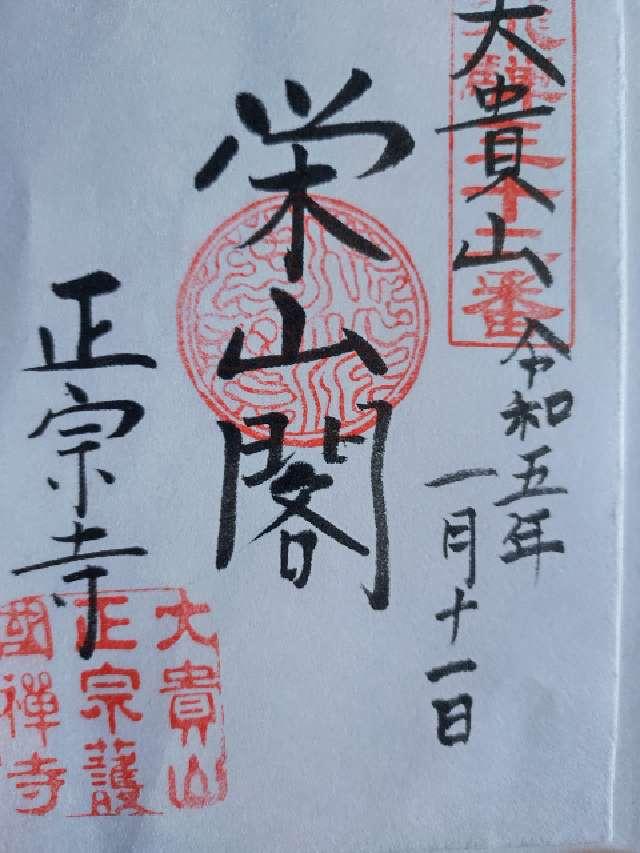 大貴山
令和五年
一月十一日
栄山閣
正宗寺
大貴山
正宗護
國禅寺